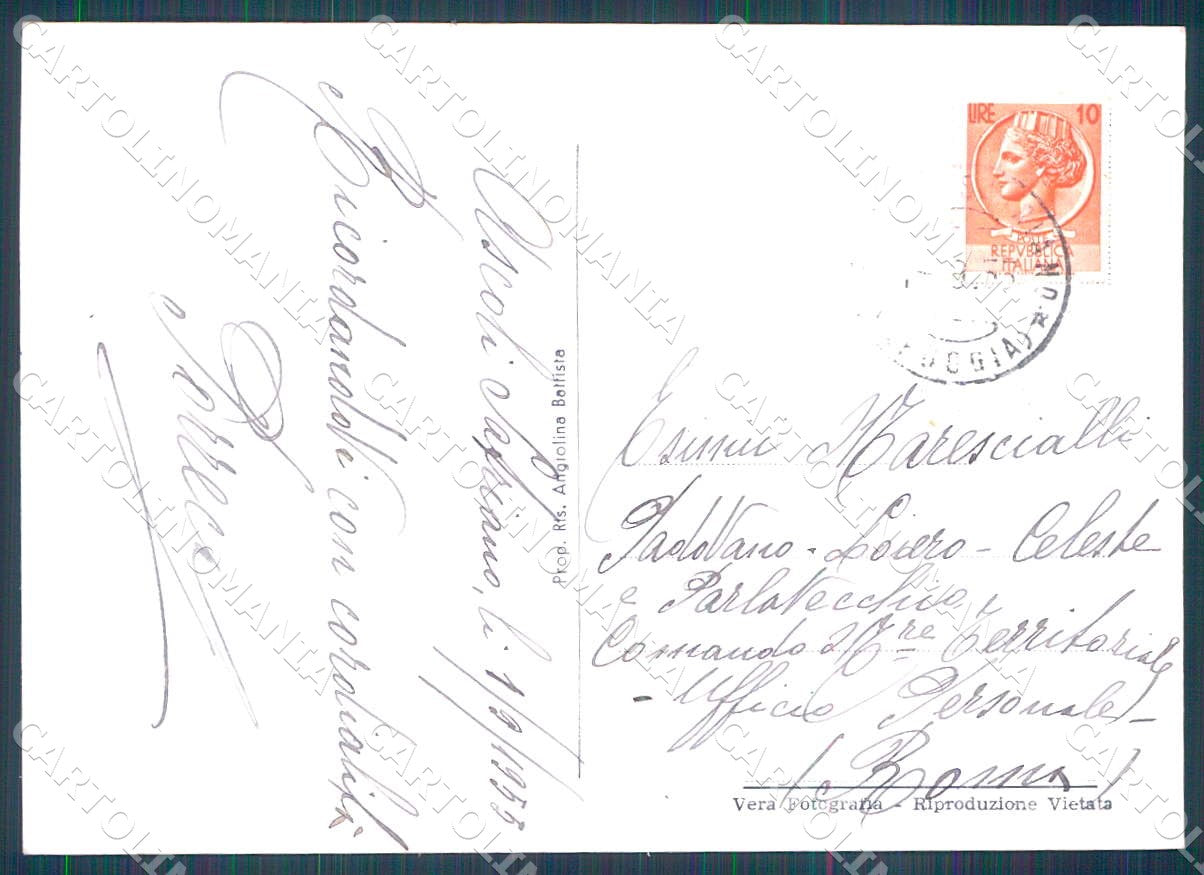 Ascoli Satriano, li 1/9/1955
Ricordandovi con cordialità
Prop. Ris. Angiolina Battista
LIRE 10
POSTE
REPVBBLICA
ITALIANA
(FOGGIA)
Esimii Marescialli
Padovano - Loiero - Celeste
e Parlavecchio
Comando M/re Territoriale
- Ufficio Personale -
(Roma)
Vera Fotografia - Riproduzione Vietata
CARTOLINOMANIA